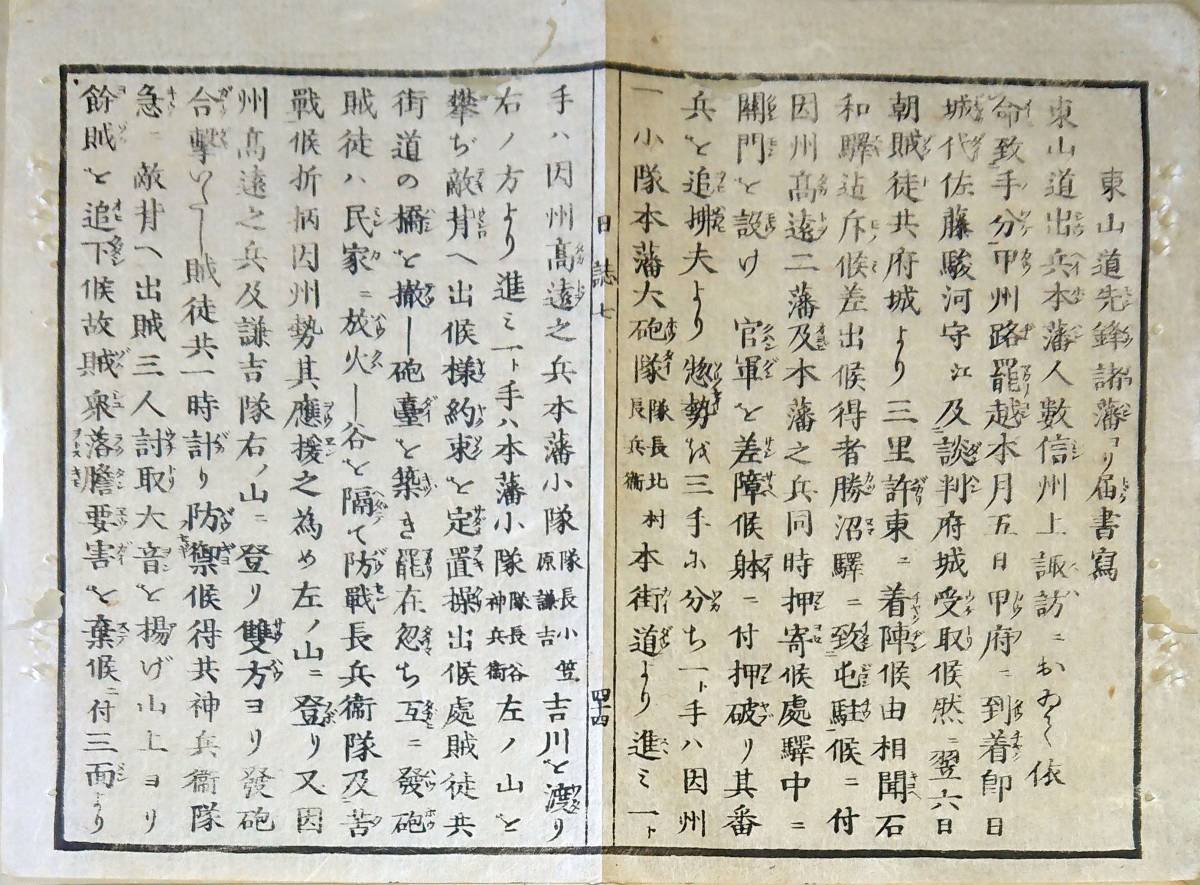 東山道先鋒諸藩ヨリ届書寫
東山道出兵本藩人數信州上諏訪ニおゐて依
命致手分甲州路罷越本月五日甲府ニ到着即日
城代佐藤駿河守江及談判府城受取候然ニ翌六日
朝賊徒共府城より三里許東ニ着陣候由相聞石
和驛迠斥候差出候得者勝沼驛ニ致屯駐候ニ付
因州髙遠二藩及本藩之兵同時押寄候處驛中ニ
關門を設け 官軍を差障候躰ニ付押破リ其番
兵を追拂夫より惣勢を三手に分ち一ト手ハ因州
一小隊本藩大砲隊隊長北村長兵衞本街道より進ミ一ト
日誌七 四十四
手ハ因州髙遠之兵本藩小隊隊長小笠原謙吉吉川を渡り
右ノ方より進ミ一ト手ハ本藩小隊隊長谷神兵衞左ノ山を
攀ぢ敵背へ出候様約束を定置操出候處賊徒共
街道の橋を撤し砲臺を築き罷在忽ち互ニ發砲
賊徒ハ民家ニ放火し谷を隔て防戰長兵衞隊及苦
戰候折柄因州勢其應援之為め左ノ山ニ登り又因
州髙遠之兵及謙吉隊右ノ山ニ登リ雙方ヨリ發砲
合擊いたし賊徒共一時計り防禦候得共神兵衞隊
急ニ敵背へ出賊三人討取大音を揚げ山上ヨリ
餘賊を追下候故賊衆落膽要害を棄候ニ付三面より